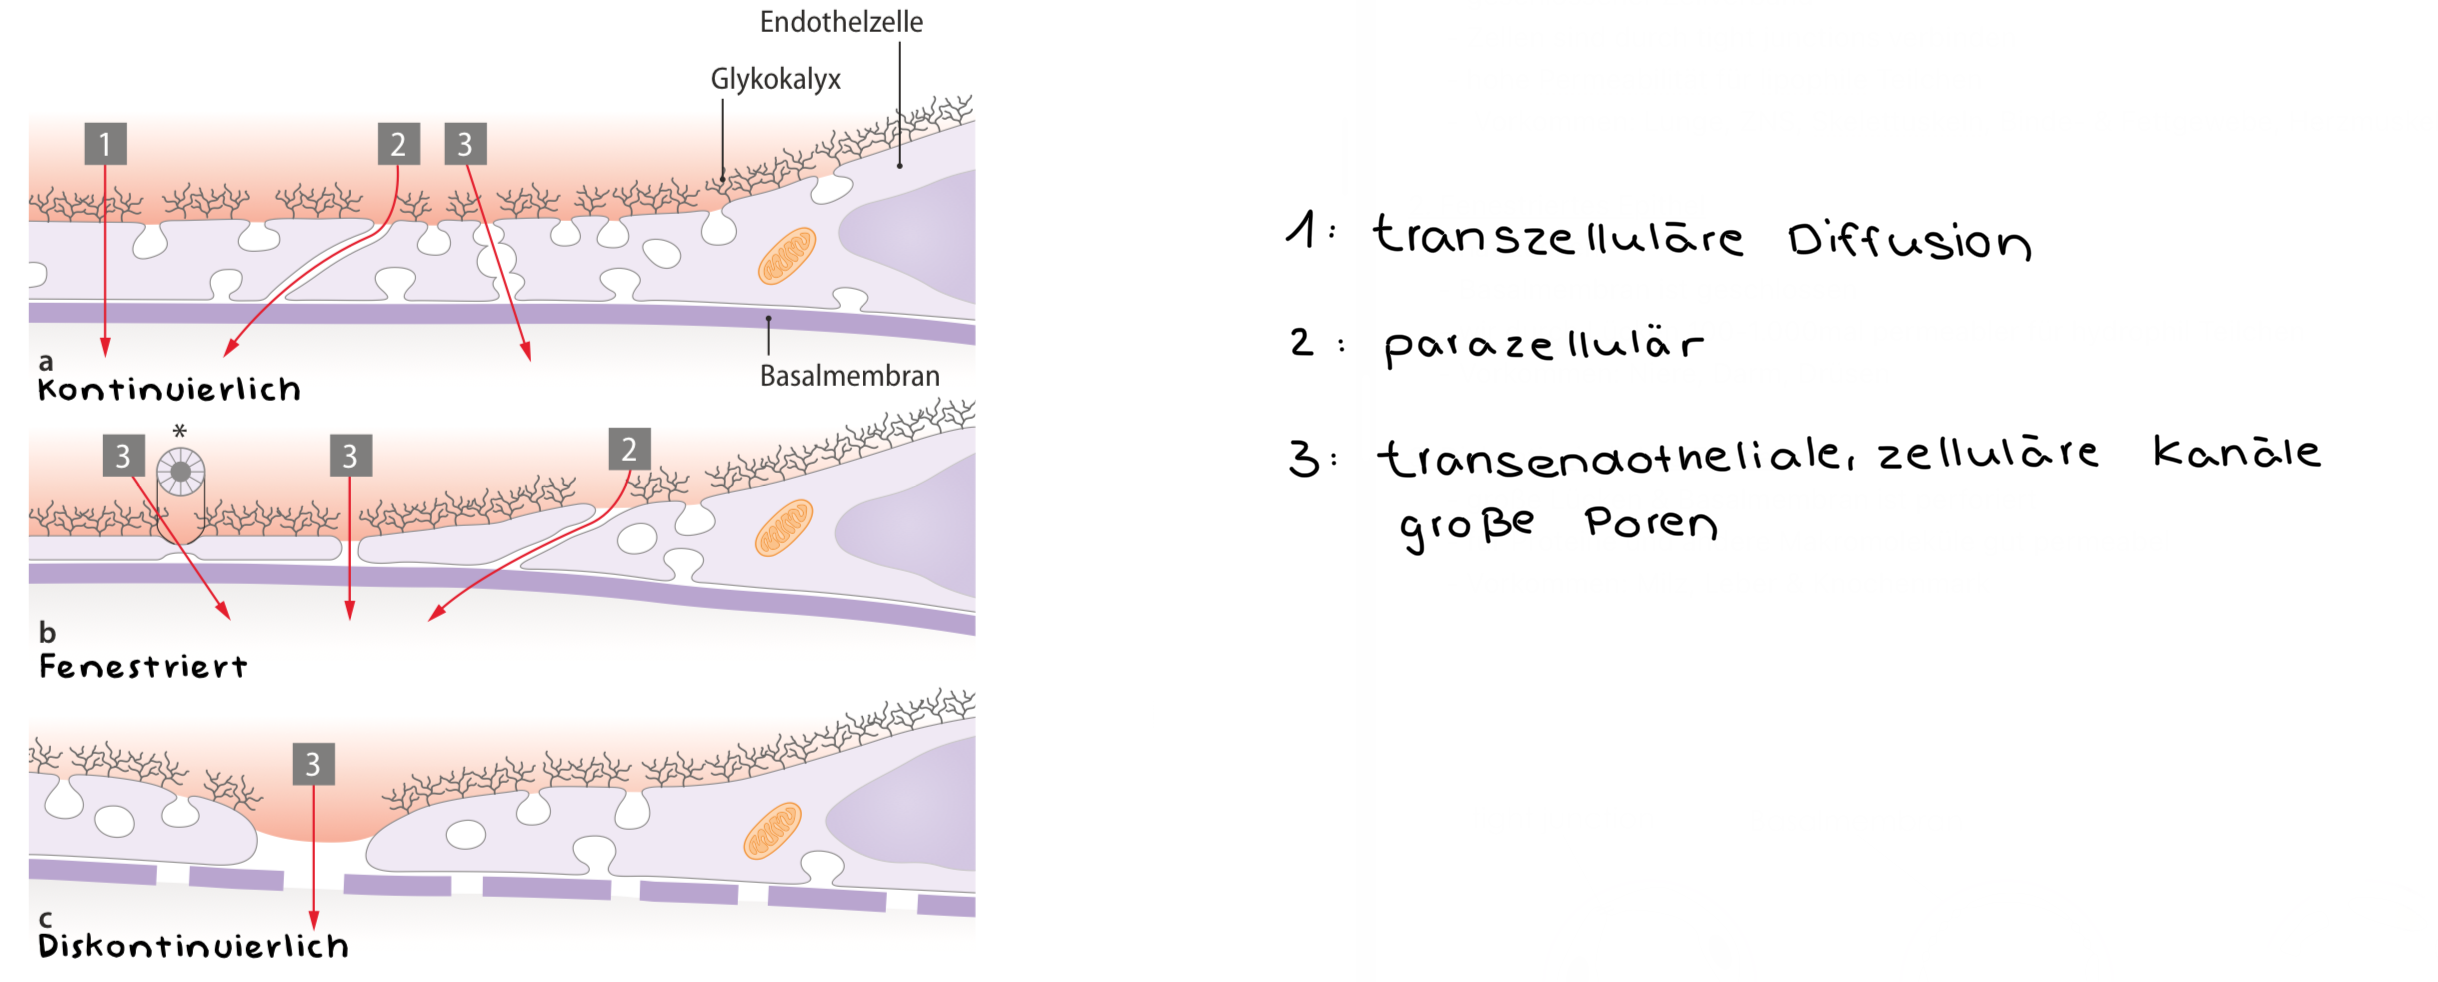 Endothelzelle
Glykokalyx
1 2 3
Basalmembran
a
Kontinuierlich
*
3 3 2
b
Fenestriert
3
c
Diskontinuierlich
1: transzelluläre Diffusion
2: parazellulär
3: transendotheliale, zelluläre Kanäle
große Poren